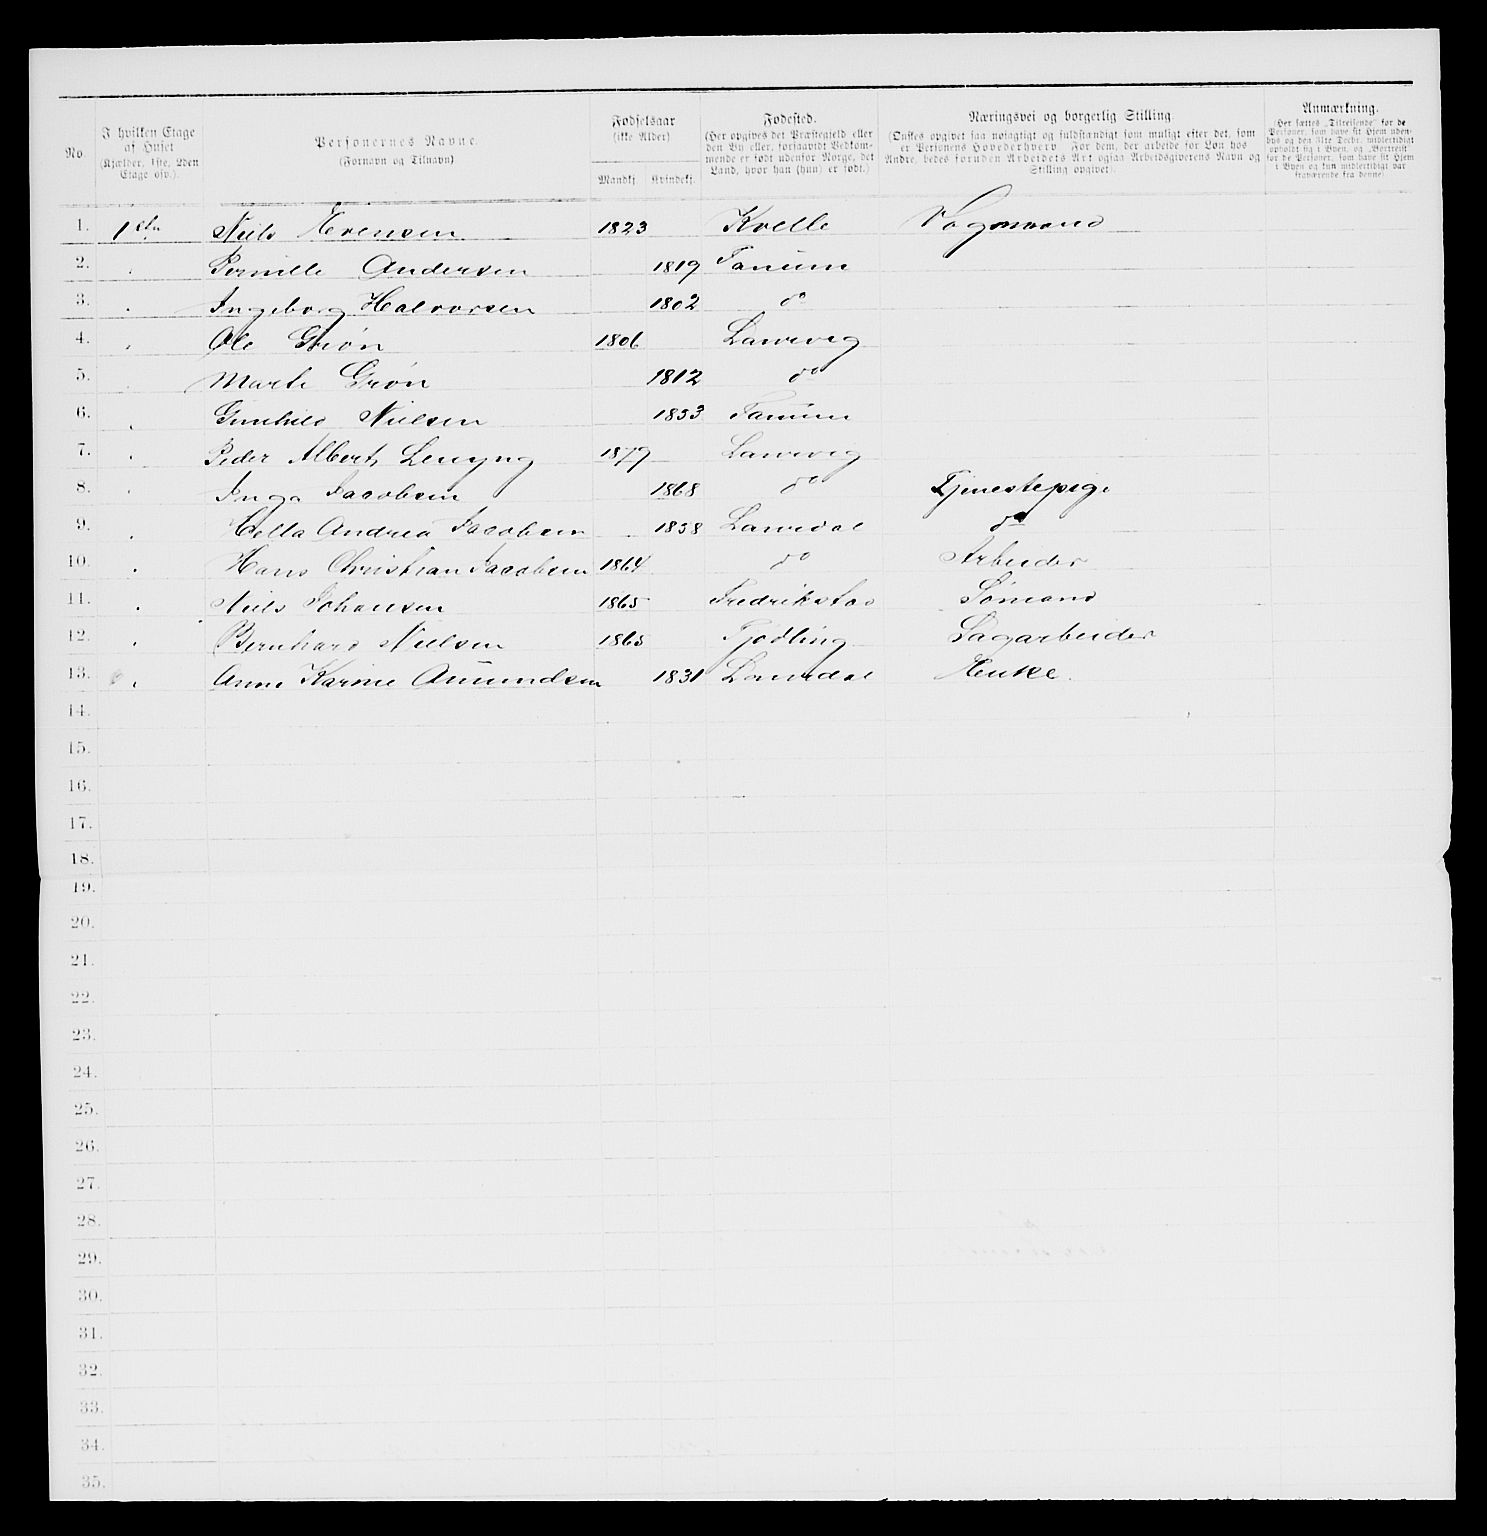 No.
I hvilken Etage af Huset (Kjælder, 1ste, 2den Etage osv.).
Personernes Navne. (Fornavn og Tilnavn)
Fødselsaar (ikke Alder)
Mandkj. Kvindekj.
Fødested. (Her opgives det Præstegjeld eller den By eller, forsaavidt Vedkommende er født udenfor Norge, det Land, hvor han (hun) er født.)
Næringsvei og borgerlig Stilling. (Ønskes opgivet saa nøiagtigt og fuldstændigt som muligt efter det, som er Personens Hovederhverv. For dem, der arbeide for Løn hos Andre, bedes foruden Arbeidets Art ogsaa Arbeidsgiverens Navn og Stilling opgivet).
Anmærkning. (Her sættes „Tilreisende" for de Personer, som have sit Hjem udenbys og den 31te Decbr. midlertidigt opholdt sig i Byen, og „Bortreist" for de Personer, som have sit Hjem i Byen og kun midlertidigt var fraværende fra denne)
1. 1 Niels Evensen 1823 Kvelle Vognmand
2. Pernille Andersen 1819 Tanum
3. Ingeborg Halvorsen 1802 do
4. Ole Grøn 1806 Laurvig
5. Marte Grøn 1812 do
6. Gunhild Nielsen 1833 Tanum
7. Peder Albert 1879 Laurvig
8. Inga Jacobsen 1868 do Tjenestepige
9. Andrea Jacobsen 1858 Laurdal do
10. Hans Christian Jacobsen 1864 do Arbeider
11. Niels Johansen 1865 Fredrikstad Sømand
12. Bernhard Nielsen 1865 Tjødling Sagarbeider
13. Anne Karine Amundsen 1831 Laurdal Enke.
14.
15.
16.
17.
18.
19.
20.
21.
22.
23.
24.
25.
26.
27.
28.
29.
30.
31.
32.
33.
34.
35.